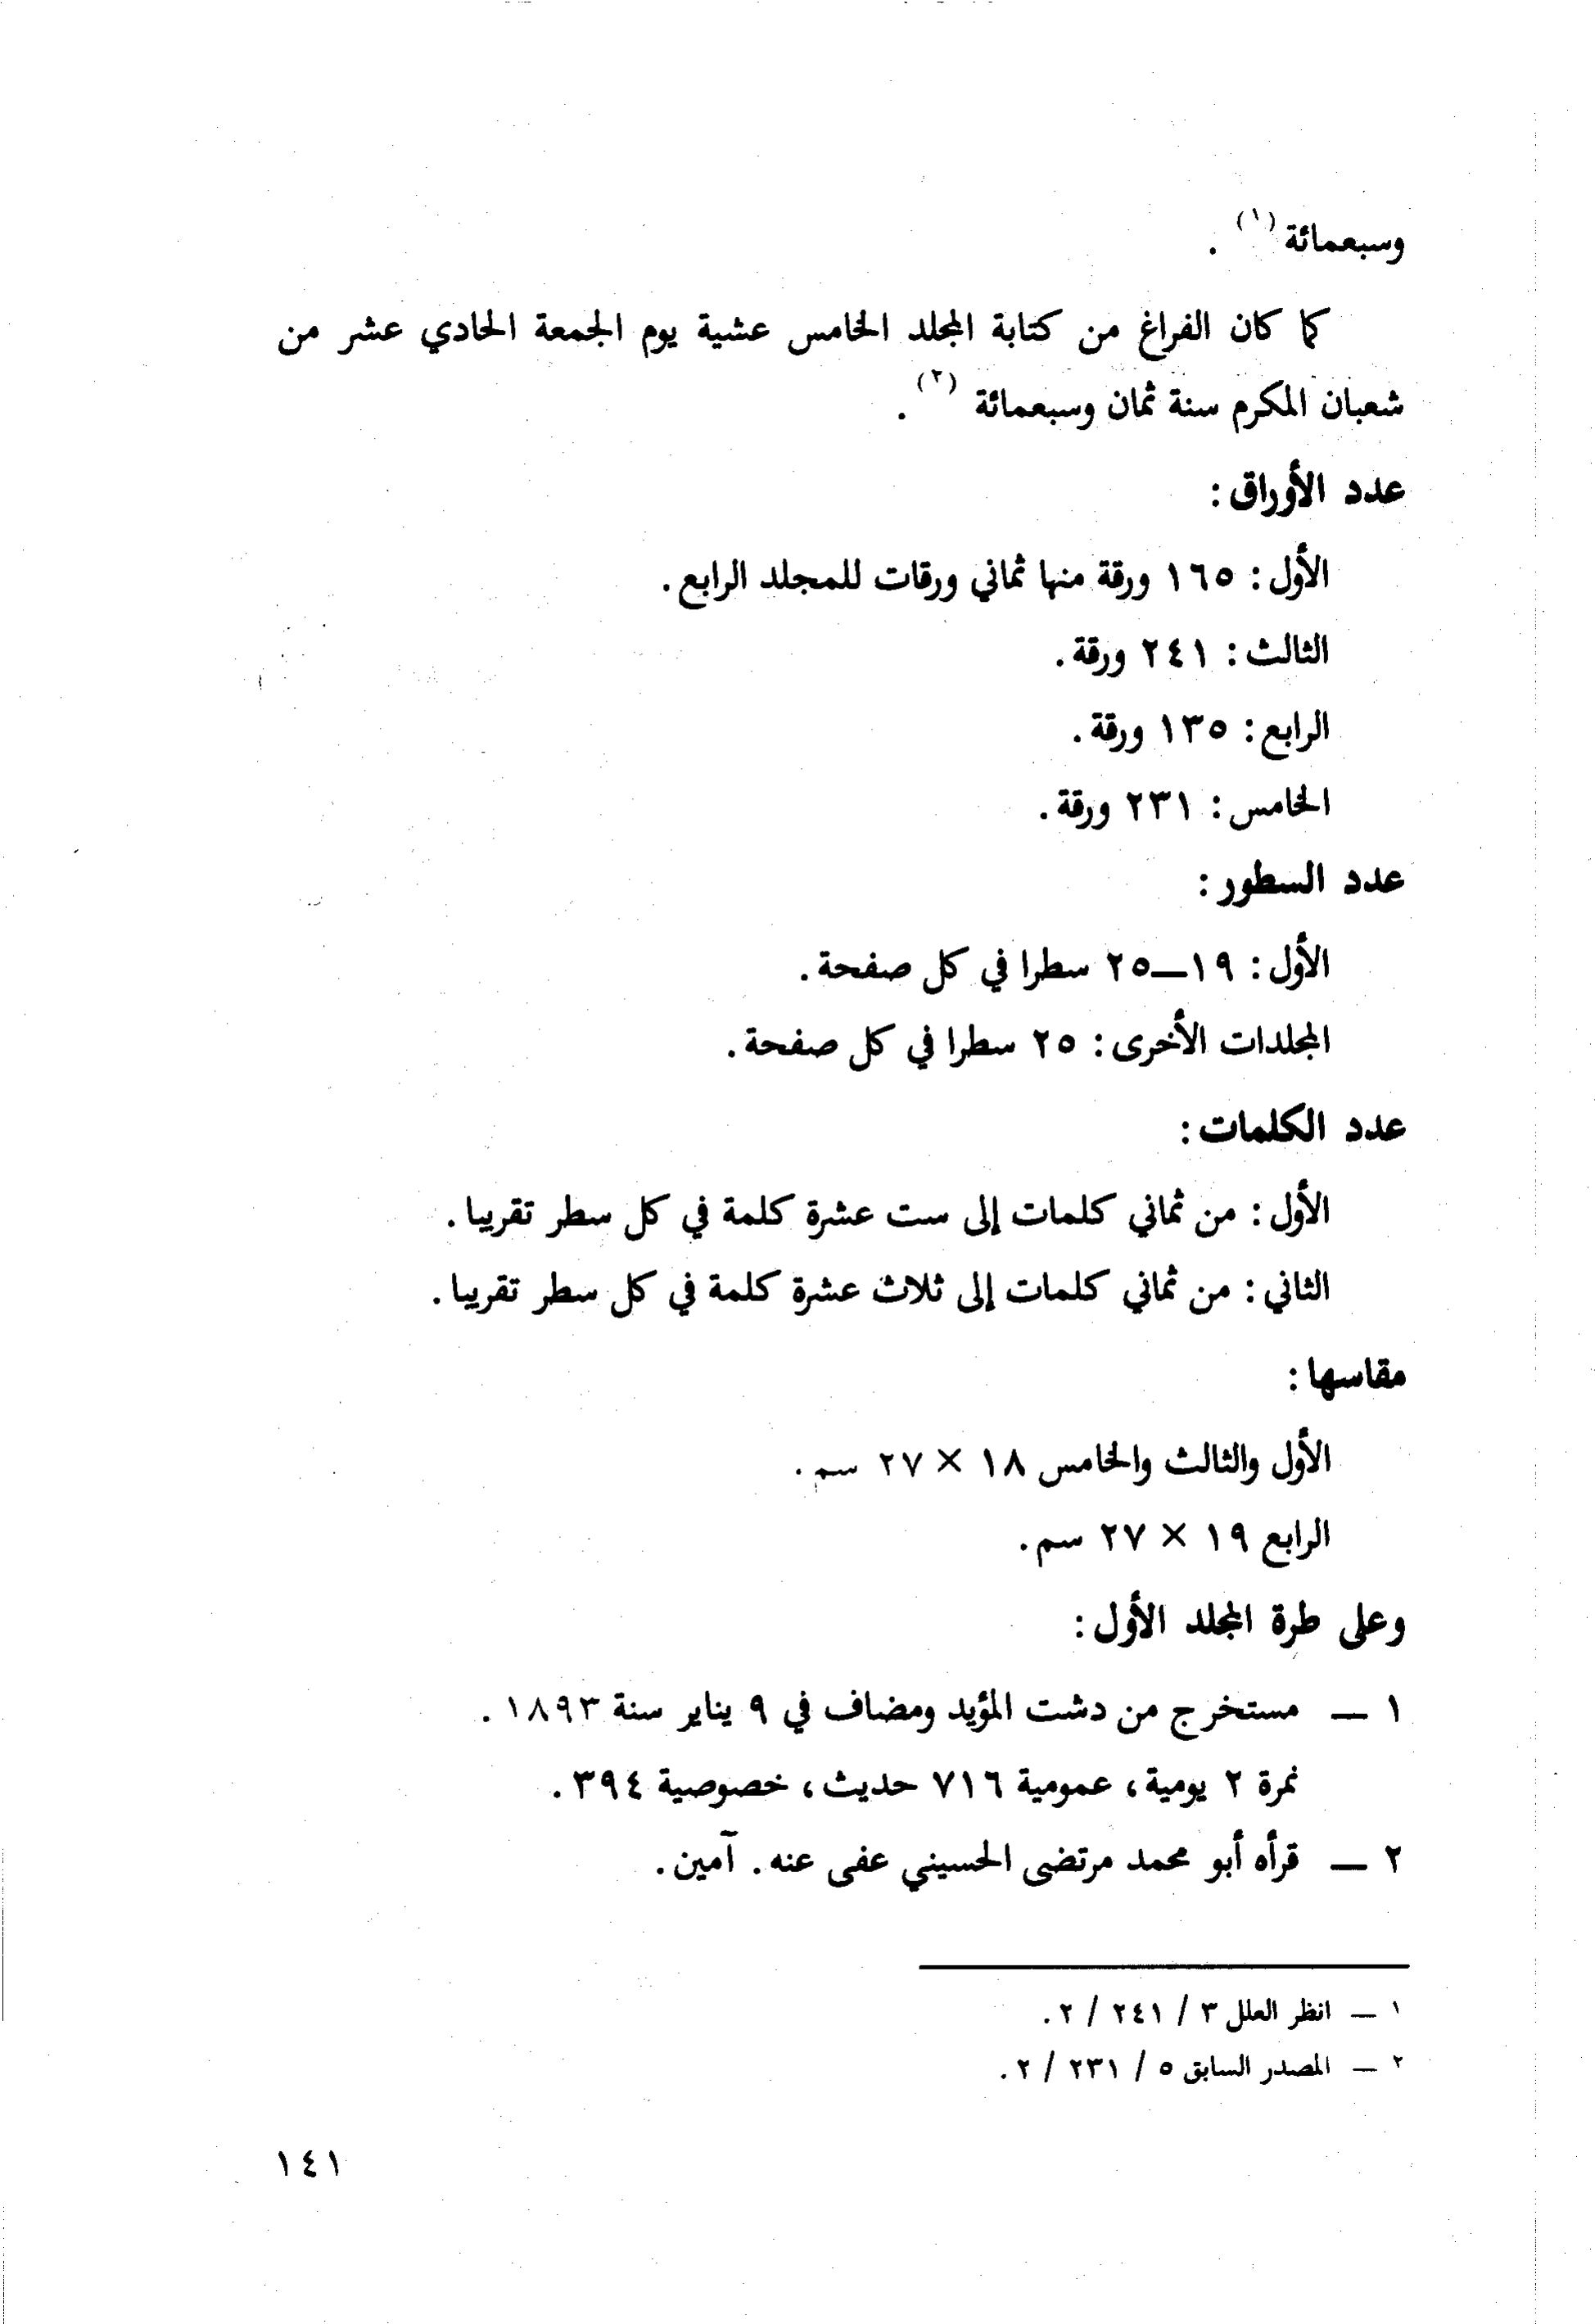 وسبعمائة (١) .
كما كان الفراغ من كتابة المجلد الخامس عشية يوم الجمعة الحادي عشر من
شعبان المكرم سنة ثمان وسبعمائة (٢) .
عدد الأوراق :
الأول : ١٦٥ ورقة منها ثماني ورقات للمجلد الرابع .
الثالث : ٢٤١ ورقة .
الرابع : ١٣٥ ورقة .
الخامس : ٢٣١ ورقة .
عدد السطور :
الأول : ١٩—٢٥ سطرا في كل صفحة .
المجلدات الأخرى : ٢٥ سطرا في كل صفحة .
عدد الكلمات :
الأول : من ثماني كلمات إلى ست عشرة كلمة في كل سطر تقريبا .
الثاني : من ثماني كلمات إلى ثلاث عشرة كلمة في كل سطر تقريبا .
مقاسها :
الأول والثالث والخامس ١٨ × ٢٧ سم .
الرابع ١٩ × ٢٧ سم .
وعلى طرة المجلد الأول :
١ — مستخرج من دشت المؤيد ومضاف في ٩ يناير سنة ١٨٩٣ .
نمرة ٢ يومية ، عمومية ٧١٦ حديث ، خصوصية ٣٩٤ .
٢ — قرأه أبو محمد مرتضى الحسيني عفى عنه . آمين .
١ — انظر العلل ٣ / ٢٤١ / ٢ .
٢ — المصدر السابق ٥ / ٢٣١ / ٢ .
١٤١